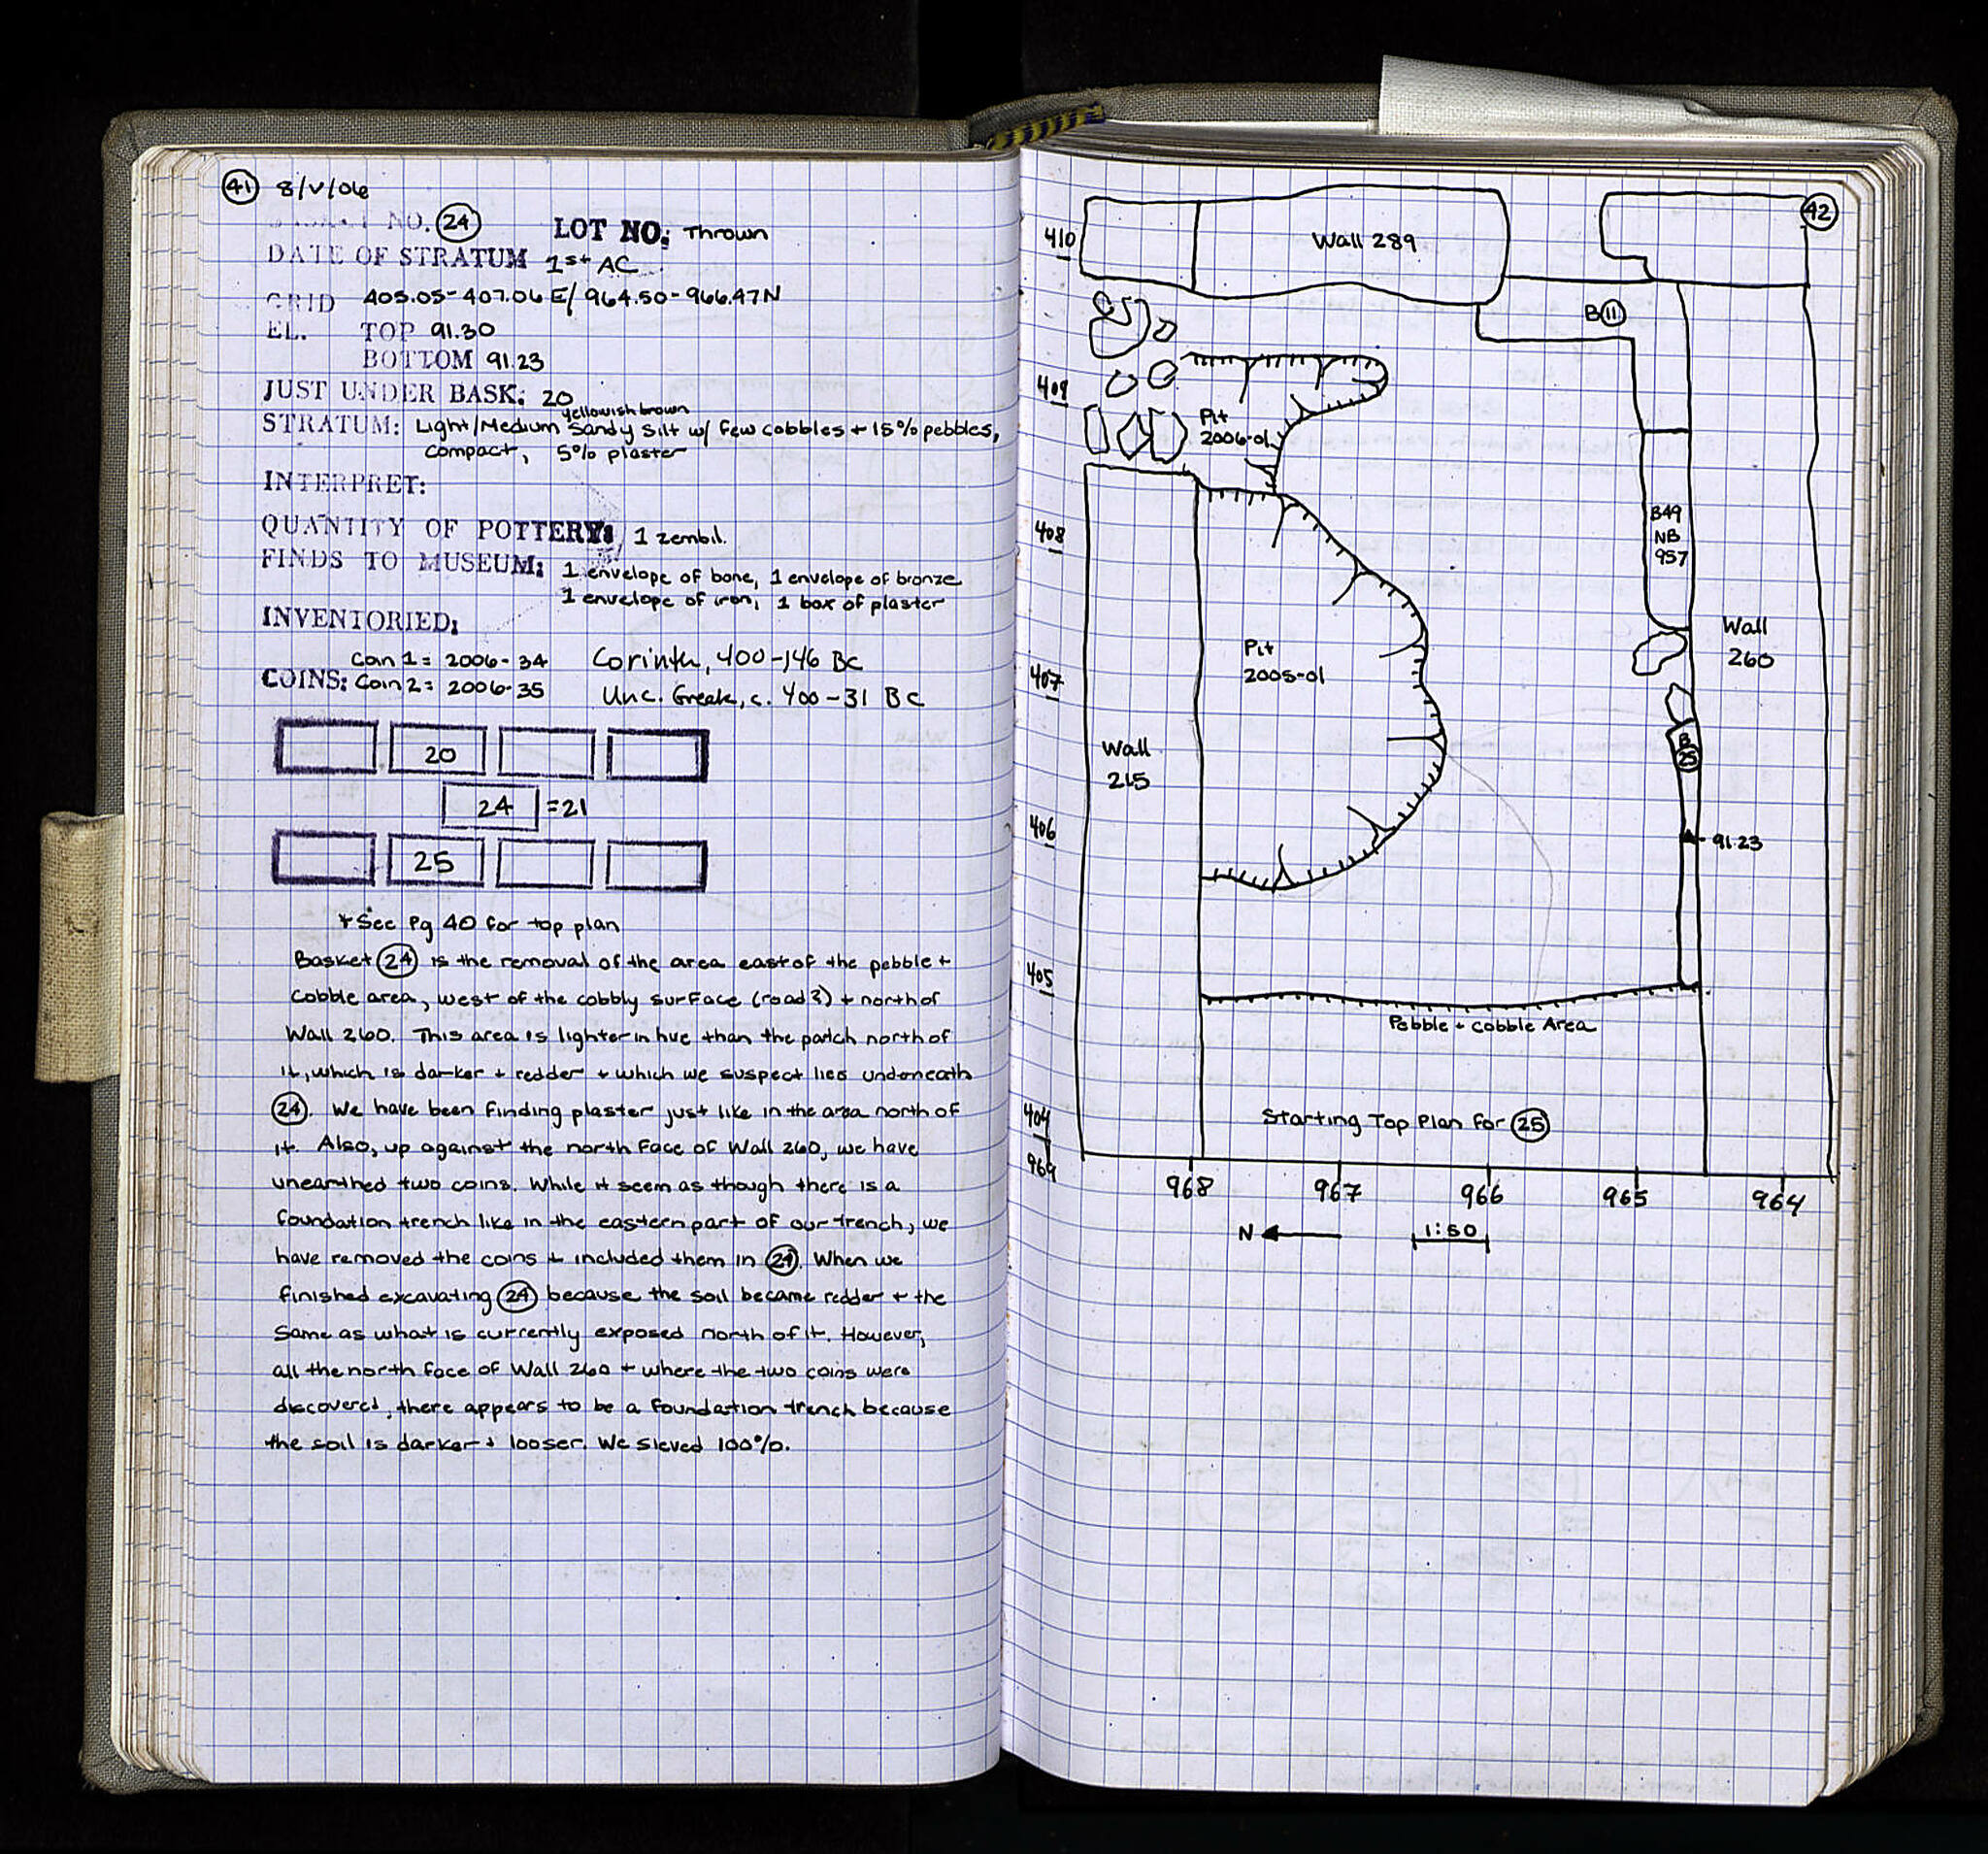 41 8/V/06
NO. 24 LOT NO: Thrown
DATE OF STRATUM 1st AC
GRID 405.05-407.06 E/ 964.50-966.47N
EL. TOP 91.30
BOTTOM 91.23
JUST UNDER BASK: 20
yellowish brown
STRATUM: Light/Medium Sandy Silt w/ few cobbles + 15% pebbles,
compact, 5% plaster
INTERPRET:
QUANTITY OF POTTERY: 1 zembil.
FINDS TO MUSEUM: 1 envelope of bone, 1 envelope of bronze
1 envelope of iron, 1 box of plaster
INVENTORIED:
Coin 1 = 2006-34 Corinth, 400-146 BC
COINS: Coin 2 = 2006-35 Unc. Greek, c. 400-31 BC
20
24 =21
25
* See pg 40 for top plan
Basket 24 is the removal of the area east of the pebble +
cobble area, west of the cobbly surface (road?) + north of
Wall 260. This area is lighter in hue than the patch north of
it, which is darker + redder + which we suspect lies underneath
24. We have been finding plaster just like in the area north of
it. Also, up against the north face of Wall 260, we have
unearthed two coins. While it seem as though there is a
foundation trench like in the eastern part of our trench, we
have removed the coins + included them in 24. When we
finished excavating 24 because the soil became redder + the
same as what is currently exposed north of it. However,
all the north face of Wall 260 + where the two coins were
discovered, there appears to be a foundation trench because
the soil is darker + looser. We sieved 100%.
42
410
Wall 289
B 11
409
Pit
2006-01
408
B49
NB
957
Wall
260
Pit
2005-01
407
Wall
215
B
25
406
91.23
405
Pebble + cobble Area
404
Starting Top Plan for 25
969
968 967 966 965 964
N 1:50